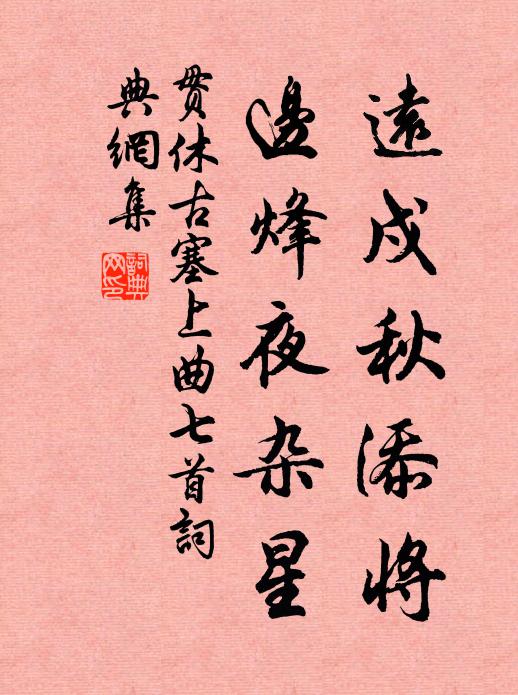 遠戍秋添將
邊烽夜杂星
貫休古塞上曲七首詞
典網集
詞典
网印